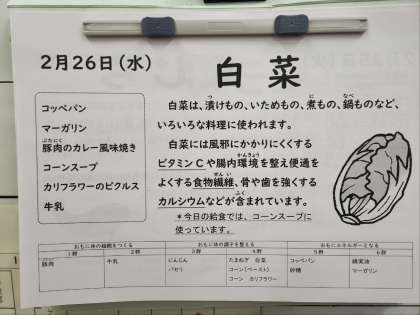 2月26日(水)
白菜
コッペパン
マーガリン
豚肉のカレー風味焼き
コーンスープ
カリフラワーのピクルス
牛乳
白菜は、漬けもの、いためもの、煮もの、鍋ものなど、
いろいろな料理に使われます。
白菜には風邪にかかりにくくする
ビタミンCや腸内環境を整え便通を
よくする食物繊維、骨や歯を強くする
カルシウムなどが含まれています。
*今日の給食では、コーンスープに
使っています。
おもに体の組織をつくる おもに体の調子を整える おもにエネルギーとなる
1群 2群 3群 4群 5群 6群
豚肉 牛乳 にんじん たまねぎ 白菜 コッペパン 綿実油
パセリ コーン(ペースト) 砂糖 マーガリン
コーン カリフラワー